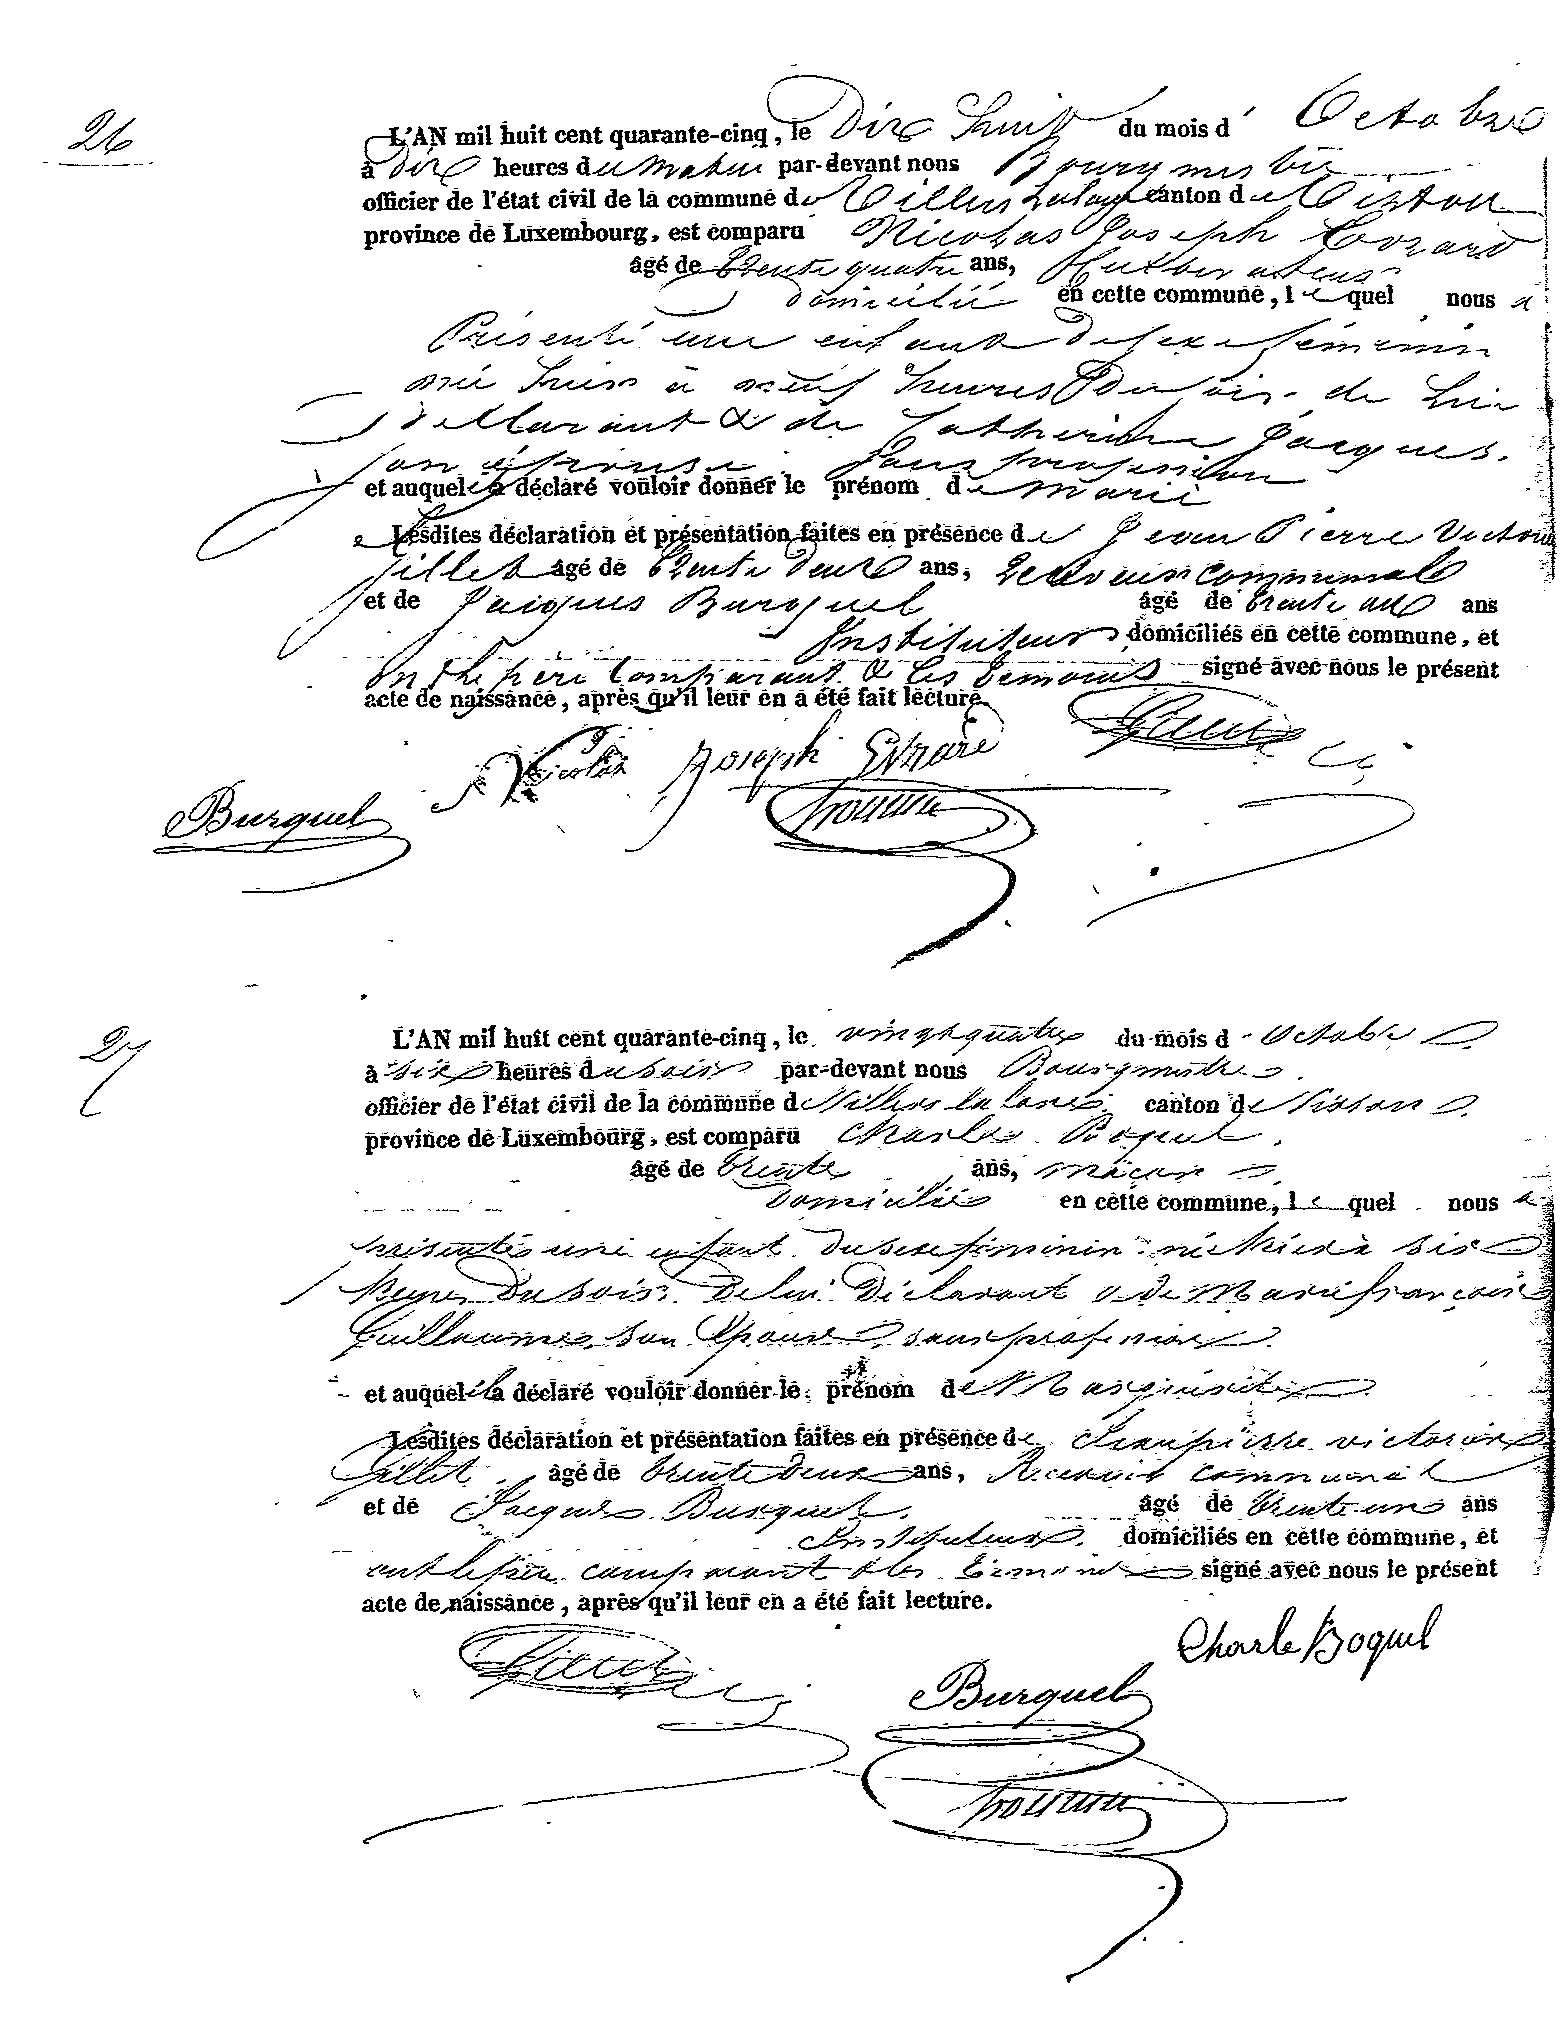 26
L'AN mil huit cent quarante-cinq, le Dix huit du mois d' Octobre
à Dix heures du matin par-devant nous Bourgmestre
officier de l'état civil de la commune de Villers Laloue canton de Virton
province de Luxembourg, est comparu Nicolas Joseph Evrard
âgé de trente quatre ans, Cultivateur
domicilié en cette commune, le quel nous a
Présenté une enfant du sexe féminin
née hier à neuf heures Du soir de lui
déclarant & de Catherine Jacques
son épouse sans profession
et auquel il a déclaré vouloir donner le prénom de Marie
Lesdites déclaration et présentation faites en présence de Jean Pierre Victor
Gillet âgé de trente Deux ans, Receveur communal
et de Jacques Burquel âgé de trente un ans
Instituteur domiciliés en cette commune, et
ont le père comparant & les témoins signé avec nous le présent
acte de naissance, après qu'il leur en a été fait lecture.
Nicolas Joseph Evrard
Burquel
27
L'AN mil huit cent quarante-cinq, le vingt quatre du mois d' Octobre
à six heures du soir par-devant nous Bourgmestre
officier de l'état civil de la commune de Villers la loue canton de Virton
province de Luxembourg, est comparu Charles Boquel
âgé de trente ans, maçon
Domicilié en cette commune, le quel nous a
présentés une enfant du sexe féminin née hier à six
heures Du soir De lui Déclarant & de Marie françoise
Guillaume son Epouse sans profession
et auquel il a déclaré vouloir donner le prénom de Marguerite
Lesdites déclaration et présentation faites en présence de Jean pierre victor
Gillet âgé de trente Deux ans, Receveur communal
et de Jacques Burquel âgé de trente un ans
Instituteur domiciliés en cette commune, et
ont le père comparant & les témoins signé avec nous le présent
acte de naissance, après qu'il leur en a été fait lecture.
Charle Boquel
Burquel